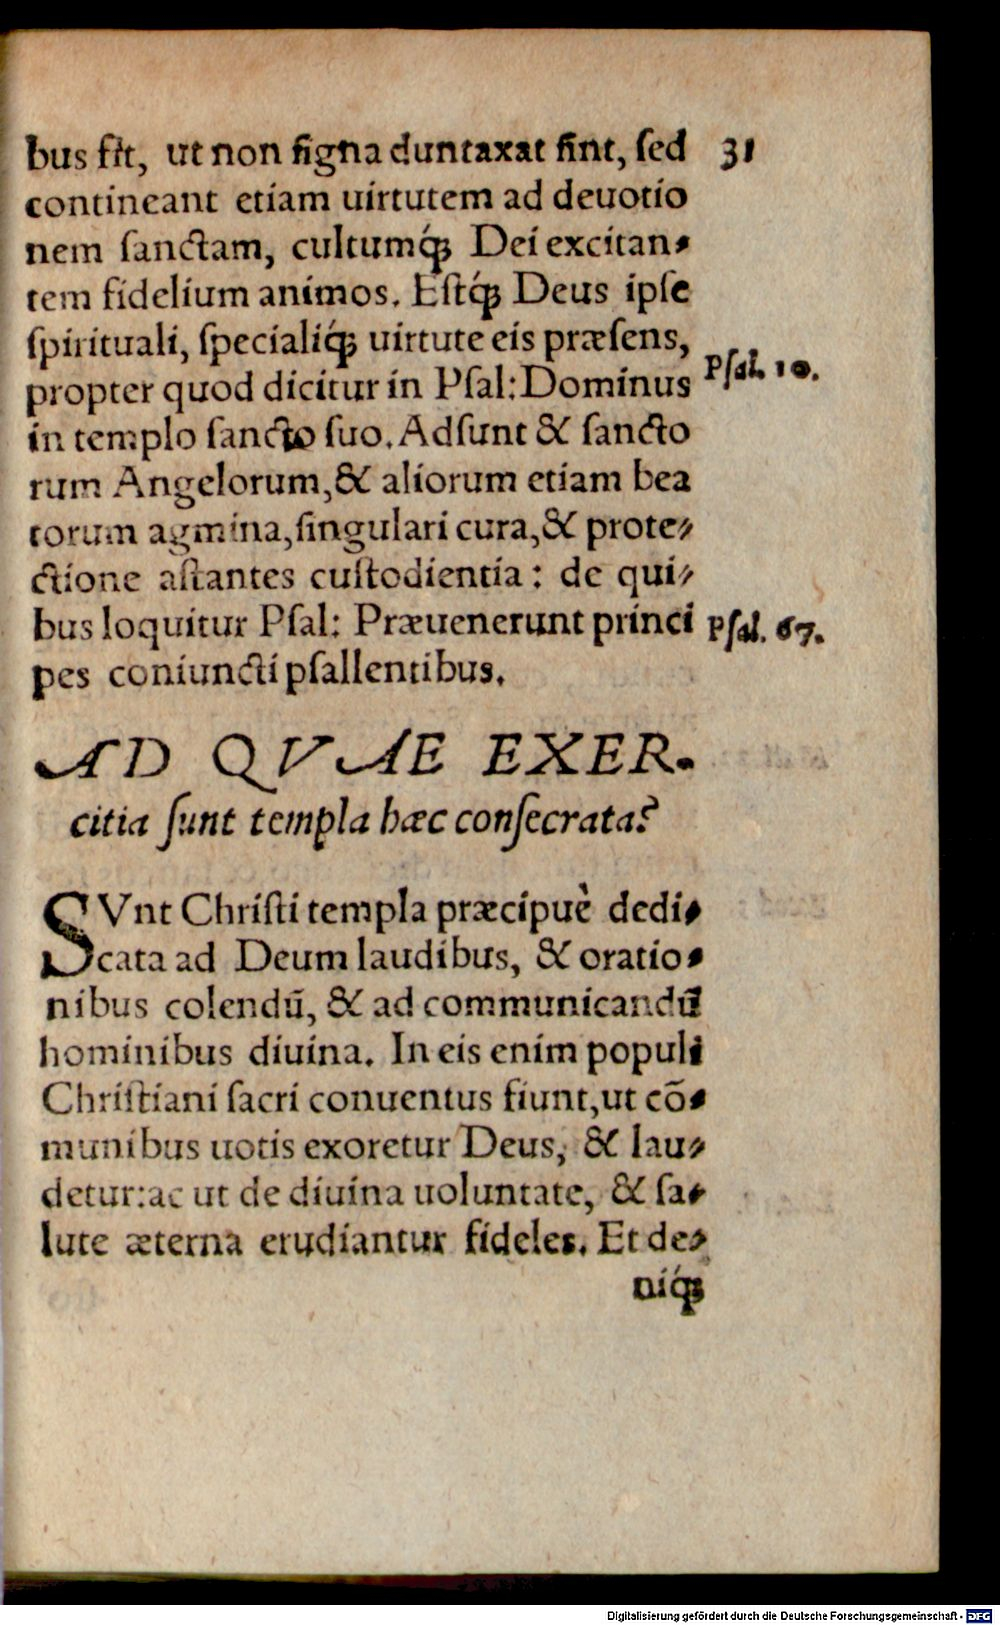 bus fit, ut non signa duntaxat sint, sed 31
contineant etiam uirtutem ad deuotio
nem sanctam, cultumq́; Dei excitan-
tem fidelium animos. Estq́; Deus ipse
spirituali, specialiq́; uirtute eis præsens,
propter quod dicitur in Psal: Dominus Psal. 10.
in templo sancto suo. Adsunt & sancto
rum Angelorum, & aliorum etiam bea
torum agmina, singulari cura, & prote-
ctione astantes custodientia: de qui-
bus loquitur Psal: Præuenerunt princi Psal. 67.
pes coniuncti psallentibus.
AD QVAE EXER-
citia sunt templa hæc consecrata?
SVnt Christi templa præcipuè dedi-
cata ad Deum laudibus, & oratio-
nibus colendū, & ad communicandū
hominibus diuina. In eis enim populi
Christiani sacri conuentus fiunt, ut cō-
munibus uotis exoretur Deus, & lau-
detur: ac ut de diuina uoluntate, & sa-
lute æterna erudiantur fideles. Et de-
niq́;
Digitalisierung gefördert durch die Deutsche Forschungsgemeinschaft - DFG